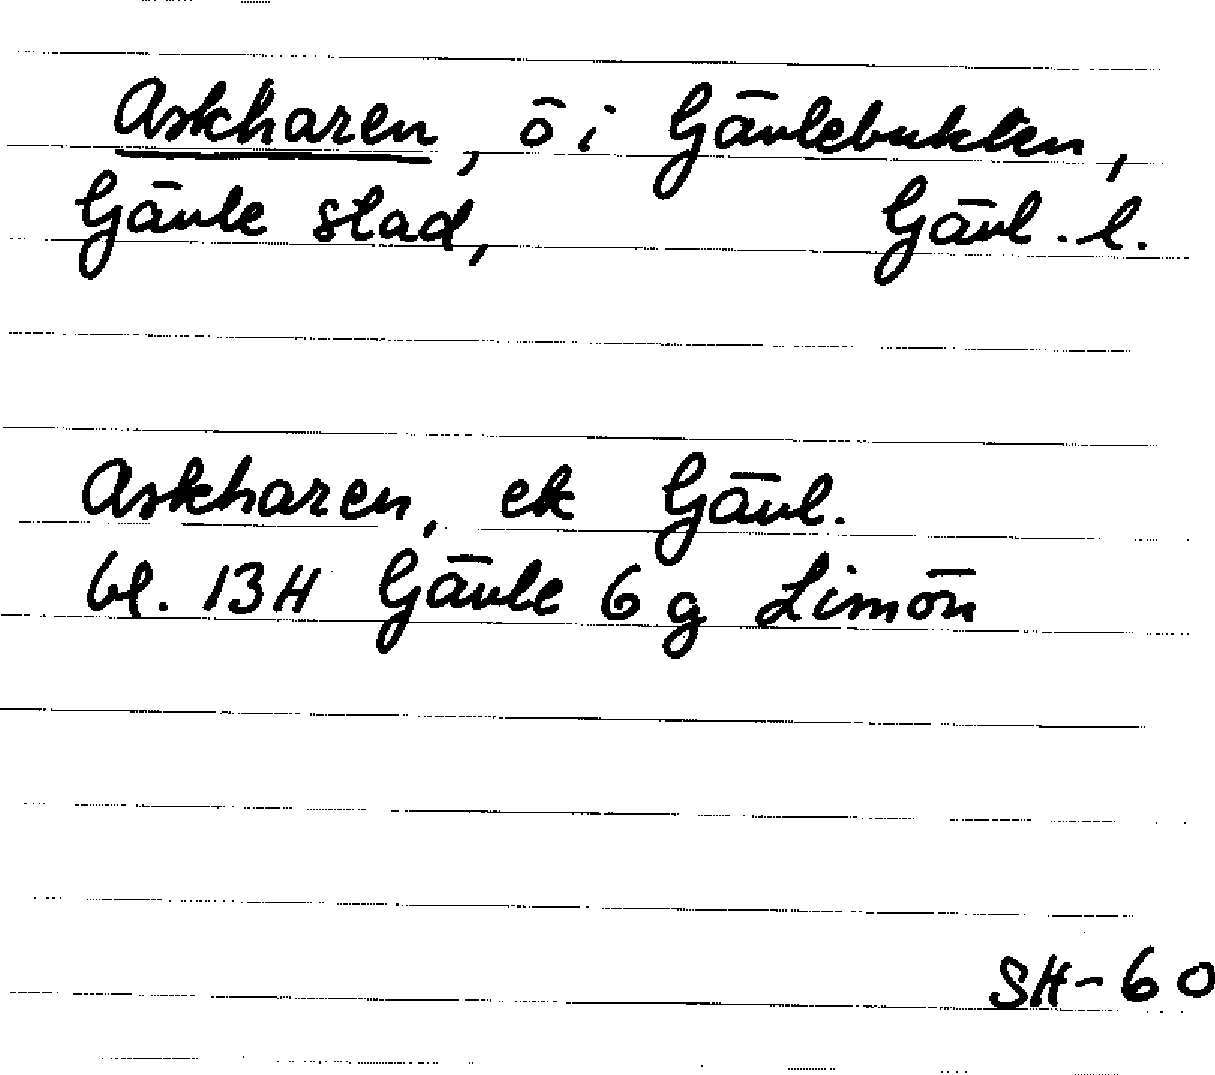 Askharen, ö i Gävlebukten,
Gävle stad, Gävl. l.
Askharen, ek Gävl.
bl. 13H Gävle 6 g Limön
SH-60